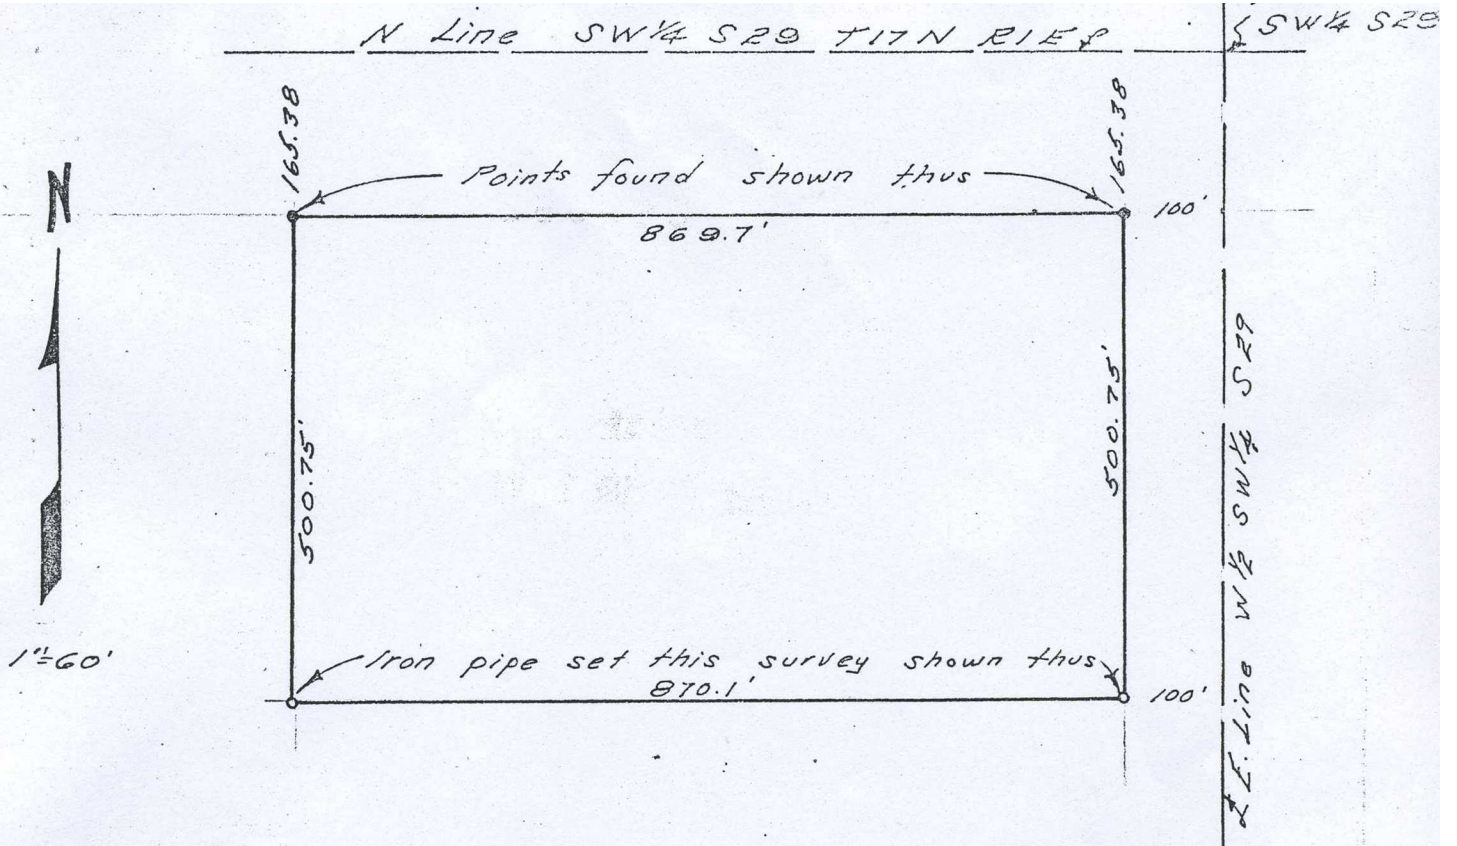 N Line SW¼ S29 T17N R1E &
& SW¼ S29
165.38
165.38
N
Points found shown thus
100'
869.7'
500.75'
500.75'
& E. Line W½ SW¼ S29
1"=60'
Iron pipe set this survey shown thus
870.1'
100'